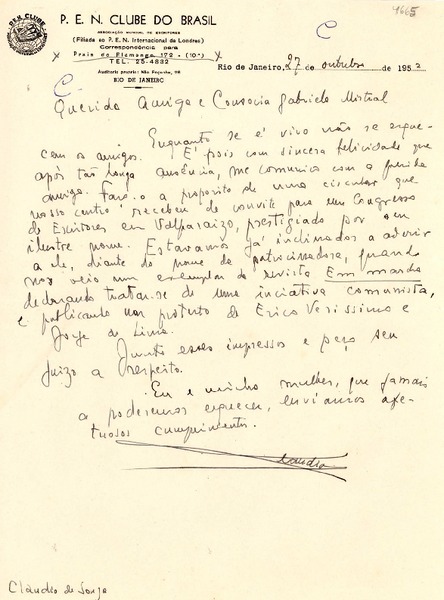 4665
C
P. E. N. CLUBE DO BRASIL
ASSOCIAÇÃO MUNDIAL DE ESCRITORES
(Filiada ao P. E. N. Internacional de Londres)
Correspondência para
x Praia do Flamengo 172 - (10º) x
TEL. 25-4832
Auditorio proprio: Nilo Peçanha, 26
RIO DE JANEIRO
Rio de Janeiro, 27 de outubro de 1952
C
Querida Amiga e Consocia Gabriela Mistral
Enquanto se é vivo não se esque-
cem os amigos. É pois com sincera felicidade que
após tão longa ausência, me comunico com a querida
amiga. Faço-o a proposito de uma circular que
nosso centro recebeu de convite para um Congresso
de Escritores em Valparaizo, prestigiado por seu
ilustre nome. Estavamos já inclinados a aderir
a ele, diante do nome da patrocinadora, quando
nos veio um exemplar da revista Em marcha
declarando tratar-se de uma iniciativa comunista,
e publicando um protesto de Erico Verissimo e
Jorge de Lima.
Junto esses impressos e peço seu
juizo a respeito.
Eu e minha mulher, que jamais
a poderemos esquecer, enviamos afe-
tuosos cumprimentos.
Claudio
Claudio de Souza